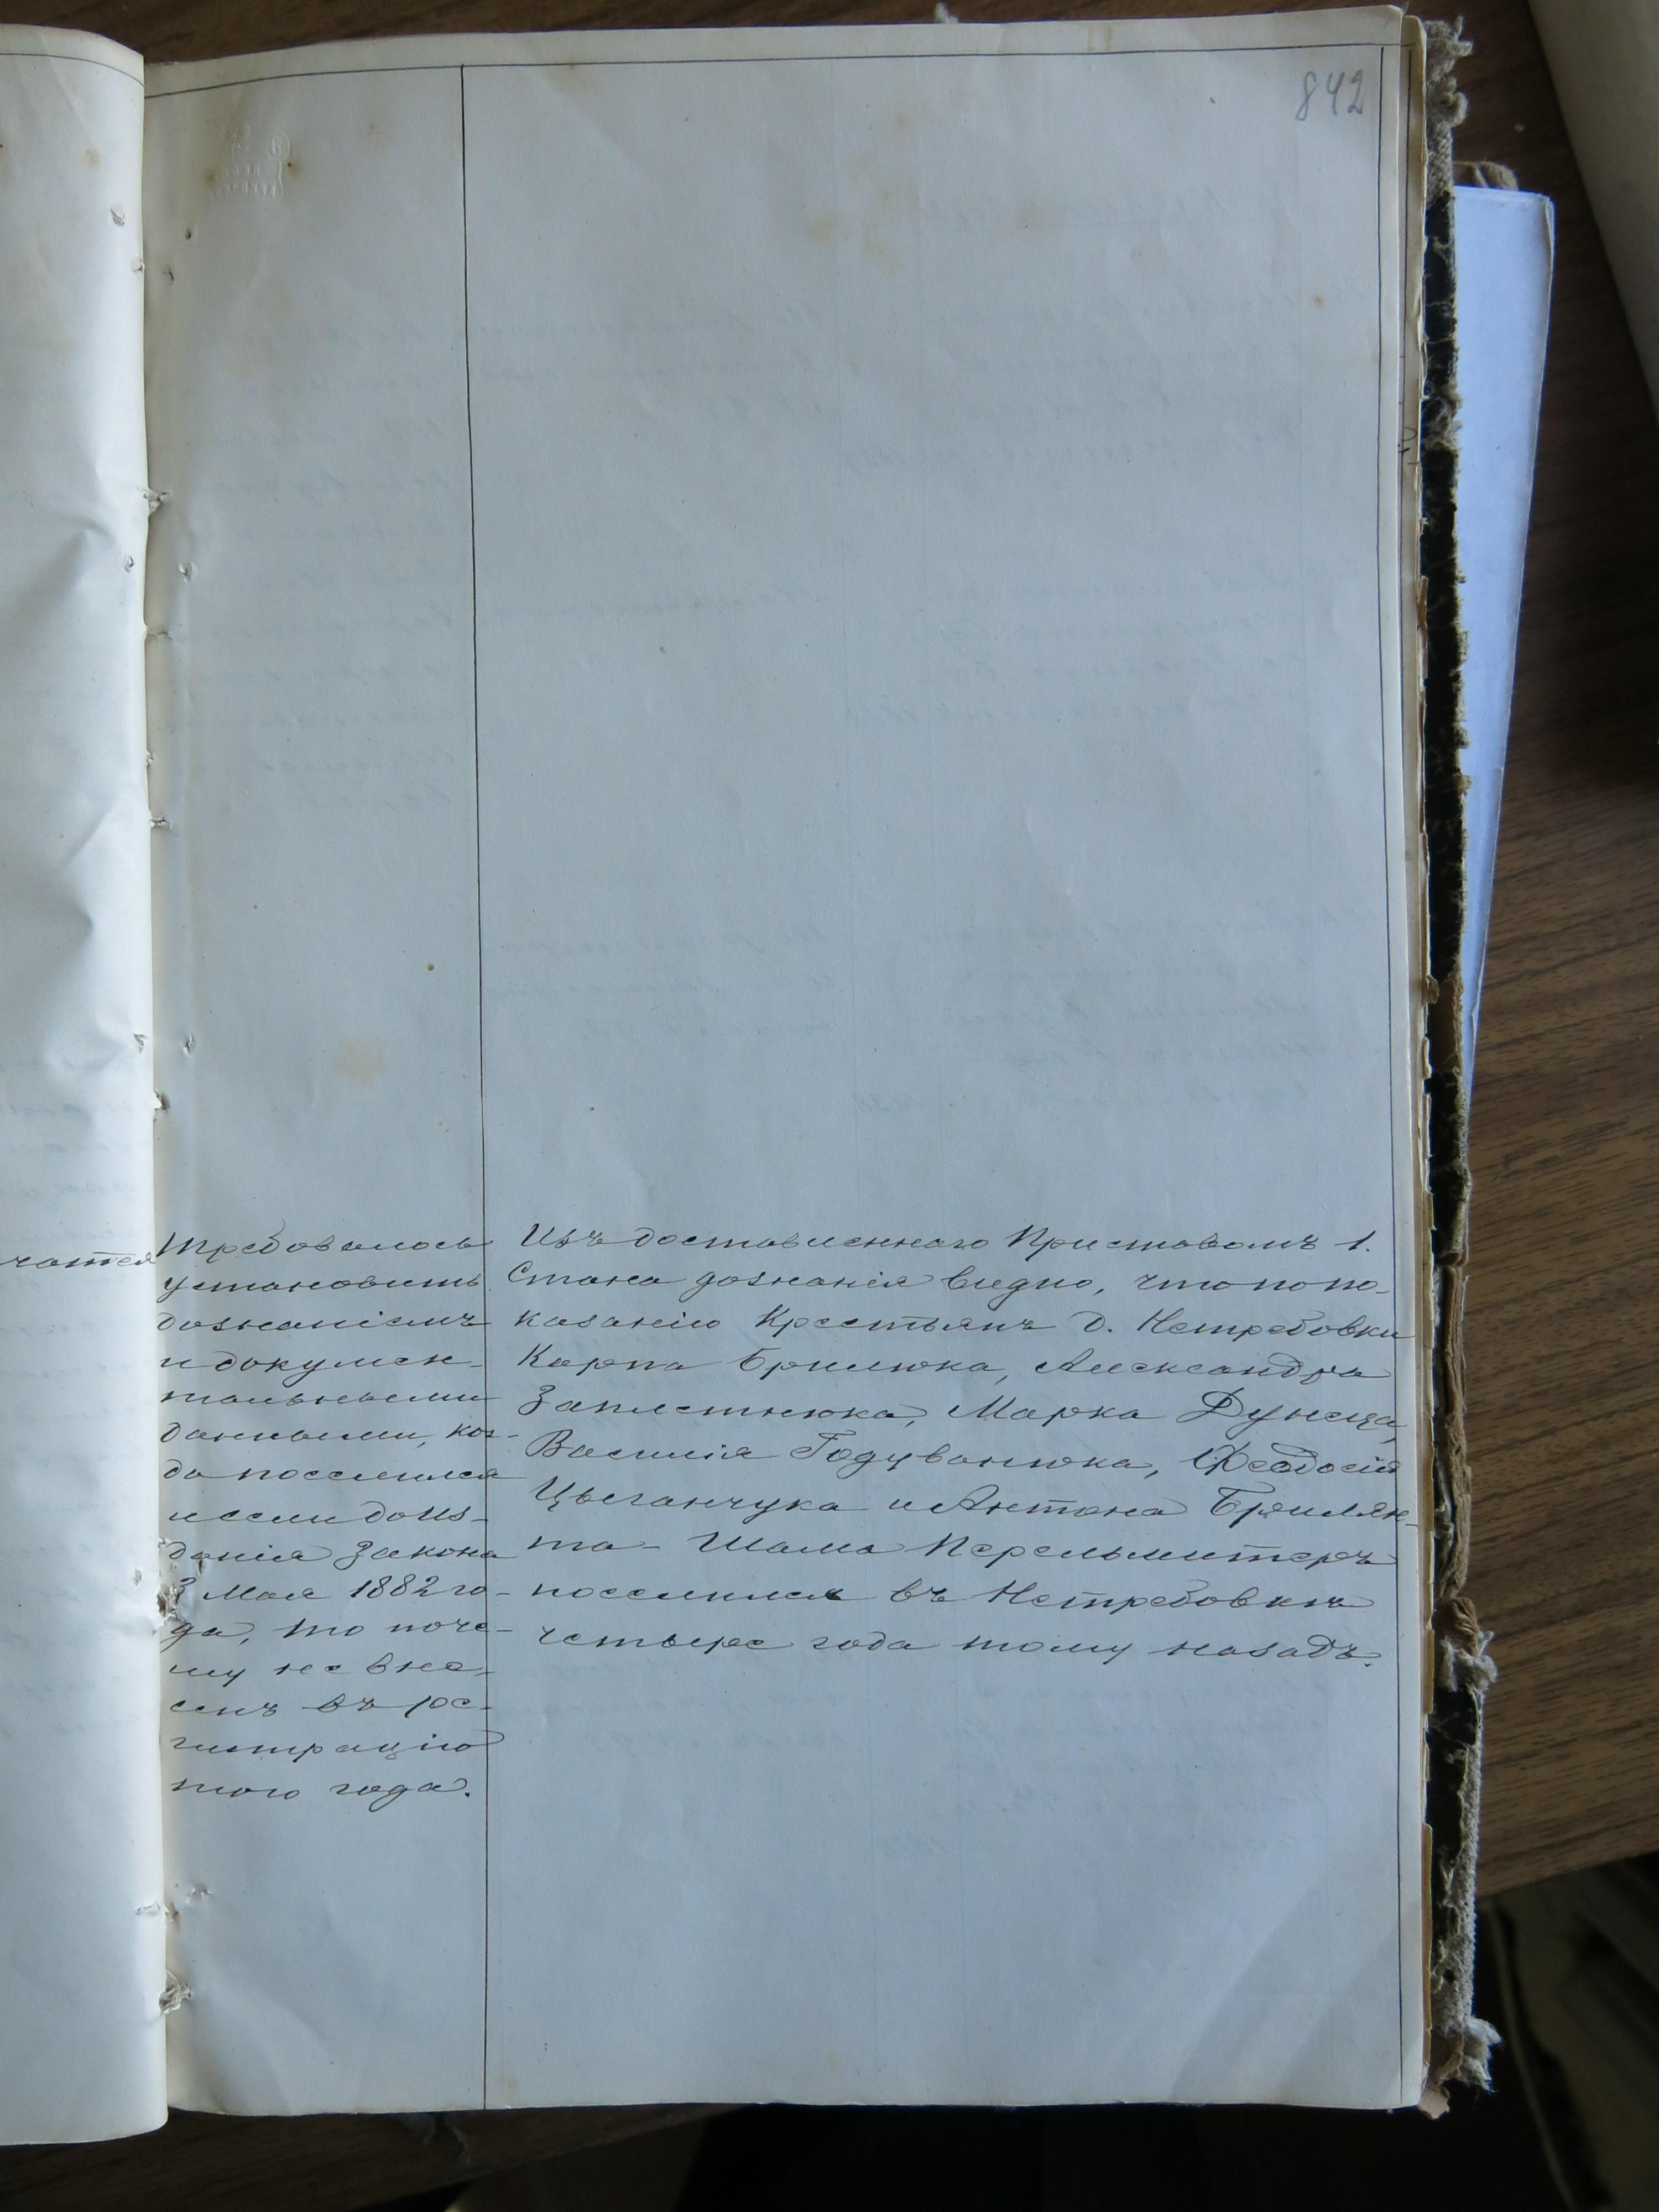 842
чатся
Требовалось
установить
дознаніемъ
и докумен-
тальными
данными, ког-
да поселился
и если до из-
данія Закона
3 Мая 1882 го-
да, то поче-
му не вне-
сенъ въ ре-
гистрацію
того года.
Изъ доставленнаго Приставомъ 1.
Стана дознанія видно, что по по-
казанію Крестьянъ д. Нетребовки
Карпа Брилюка, Александра
Заплетнюка, Марка Дунеца,
Василія Годуванюка, Феодосія
Цыганчука и Антона Брилян-
та - Шама Перельмитеръ
поселился въ Нетребовкѣ
четыре года тому назадъ.